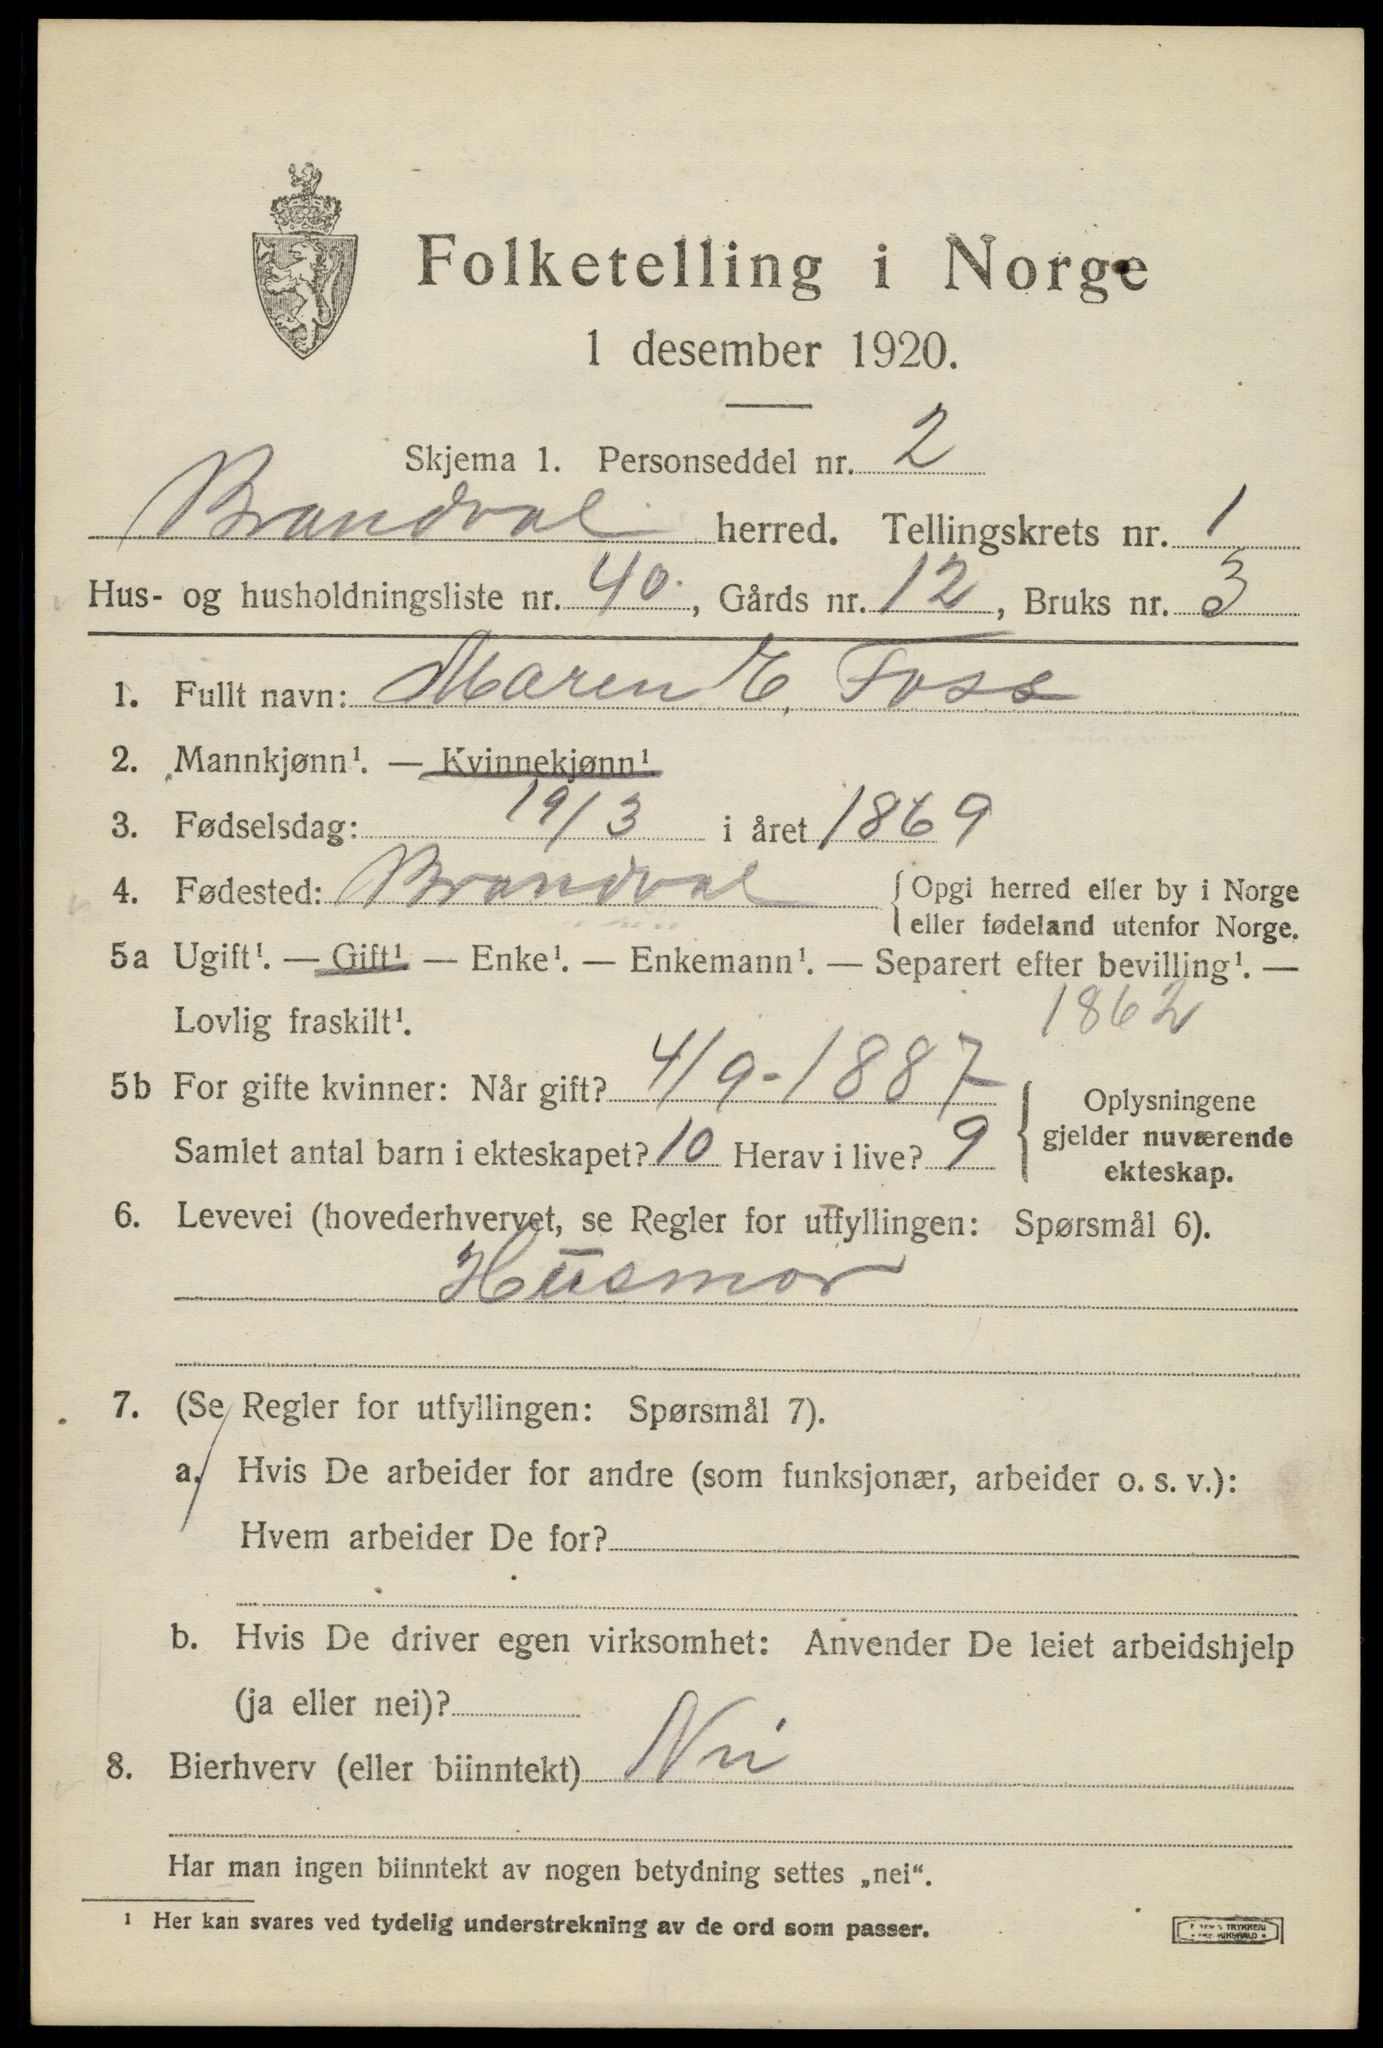 Folketelling i Norge
1 desember 1920.
Skjema 1. Personseddel nr. 2
Brandval herred. Tellingskrets nr. 1
Hus- og husholdningsliste nr. 40, Gårds nr. 12, Bruks nr. 3
1. Fullt navn: Maren E. Foss
2. Mannkjønn¹. — Kvinnekjønn¹
3. Fødselsdag: 19/3 i året 1869
4. Fødested: Brandval { Opgi herred eller by i Norge
eller fødeland utenfor Norge.
5a Ugift¹. — Gift¹ — Enke¹. — Enkemann¹. — Separert efter bevilling¹. —
Lovlig fraskilt¹. 1862
5b For gifte kvinner: Når gift? 4/9-1887 { Oplysningene
gjelder nuværende
ekteskap.
Samlet antal barn i ekteskapet? 10 Herav i live? 9
6. Levevei (hovederhvervet, se Regler for utfyllingen: Spørsmål 6).
Husmor
7. (Se Regler for utfyllingen: Spørsmål 7).
a. Hvis De arbeider for andre (som funksjonær, arbeider o. s. v.):
Hvem arbeider De for?
b. Hvis De driver egen virksomhet: Anvender De leiet arbeidshjelp
(ja eller nei)?
8. Bierhverv (eller biinntekt) Nei
Har man ingen biinntekt av nogen betydning settes „nei“.
¹ Her kan svares ved tydelig understrekning av de ord som passer.